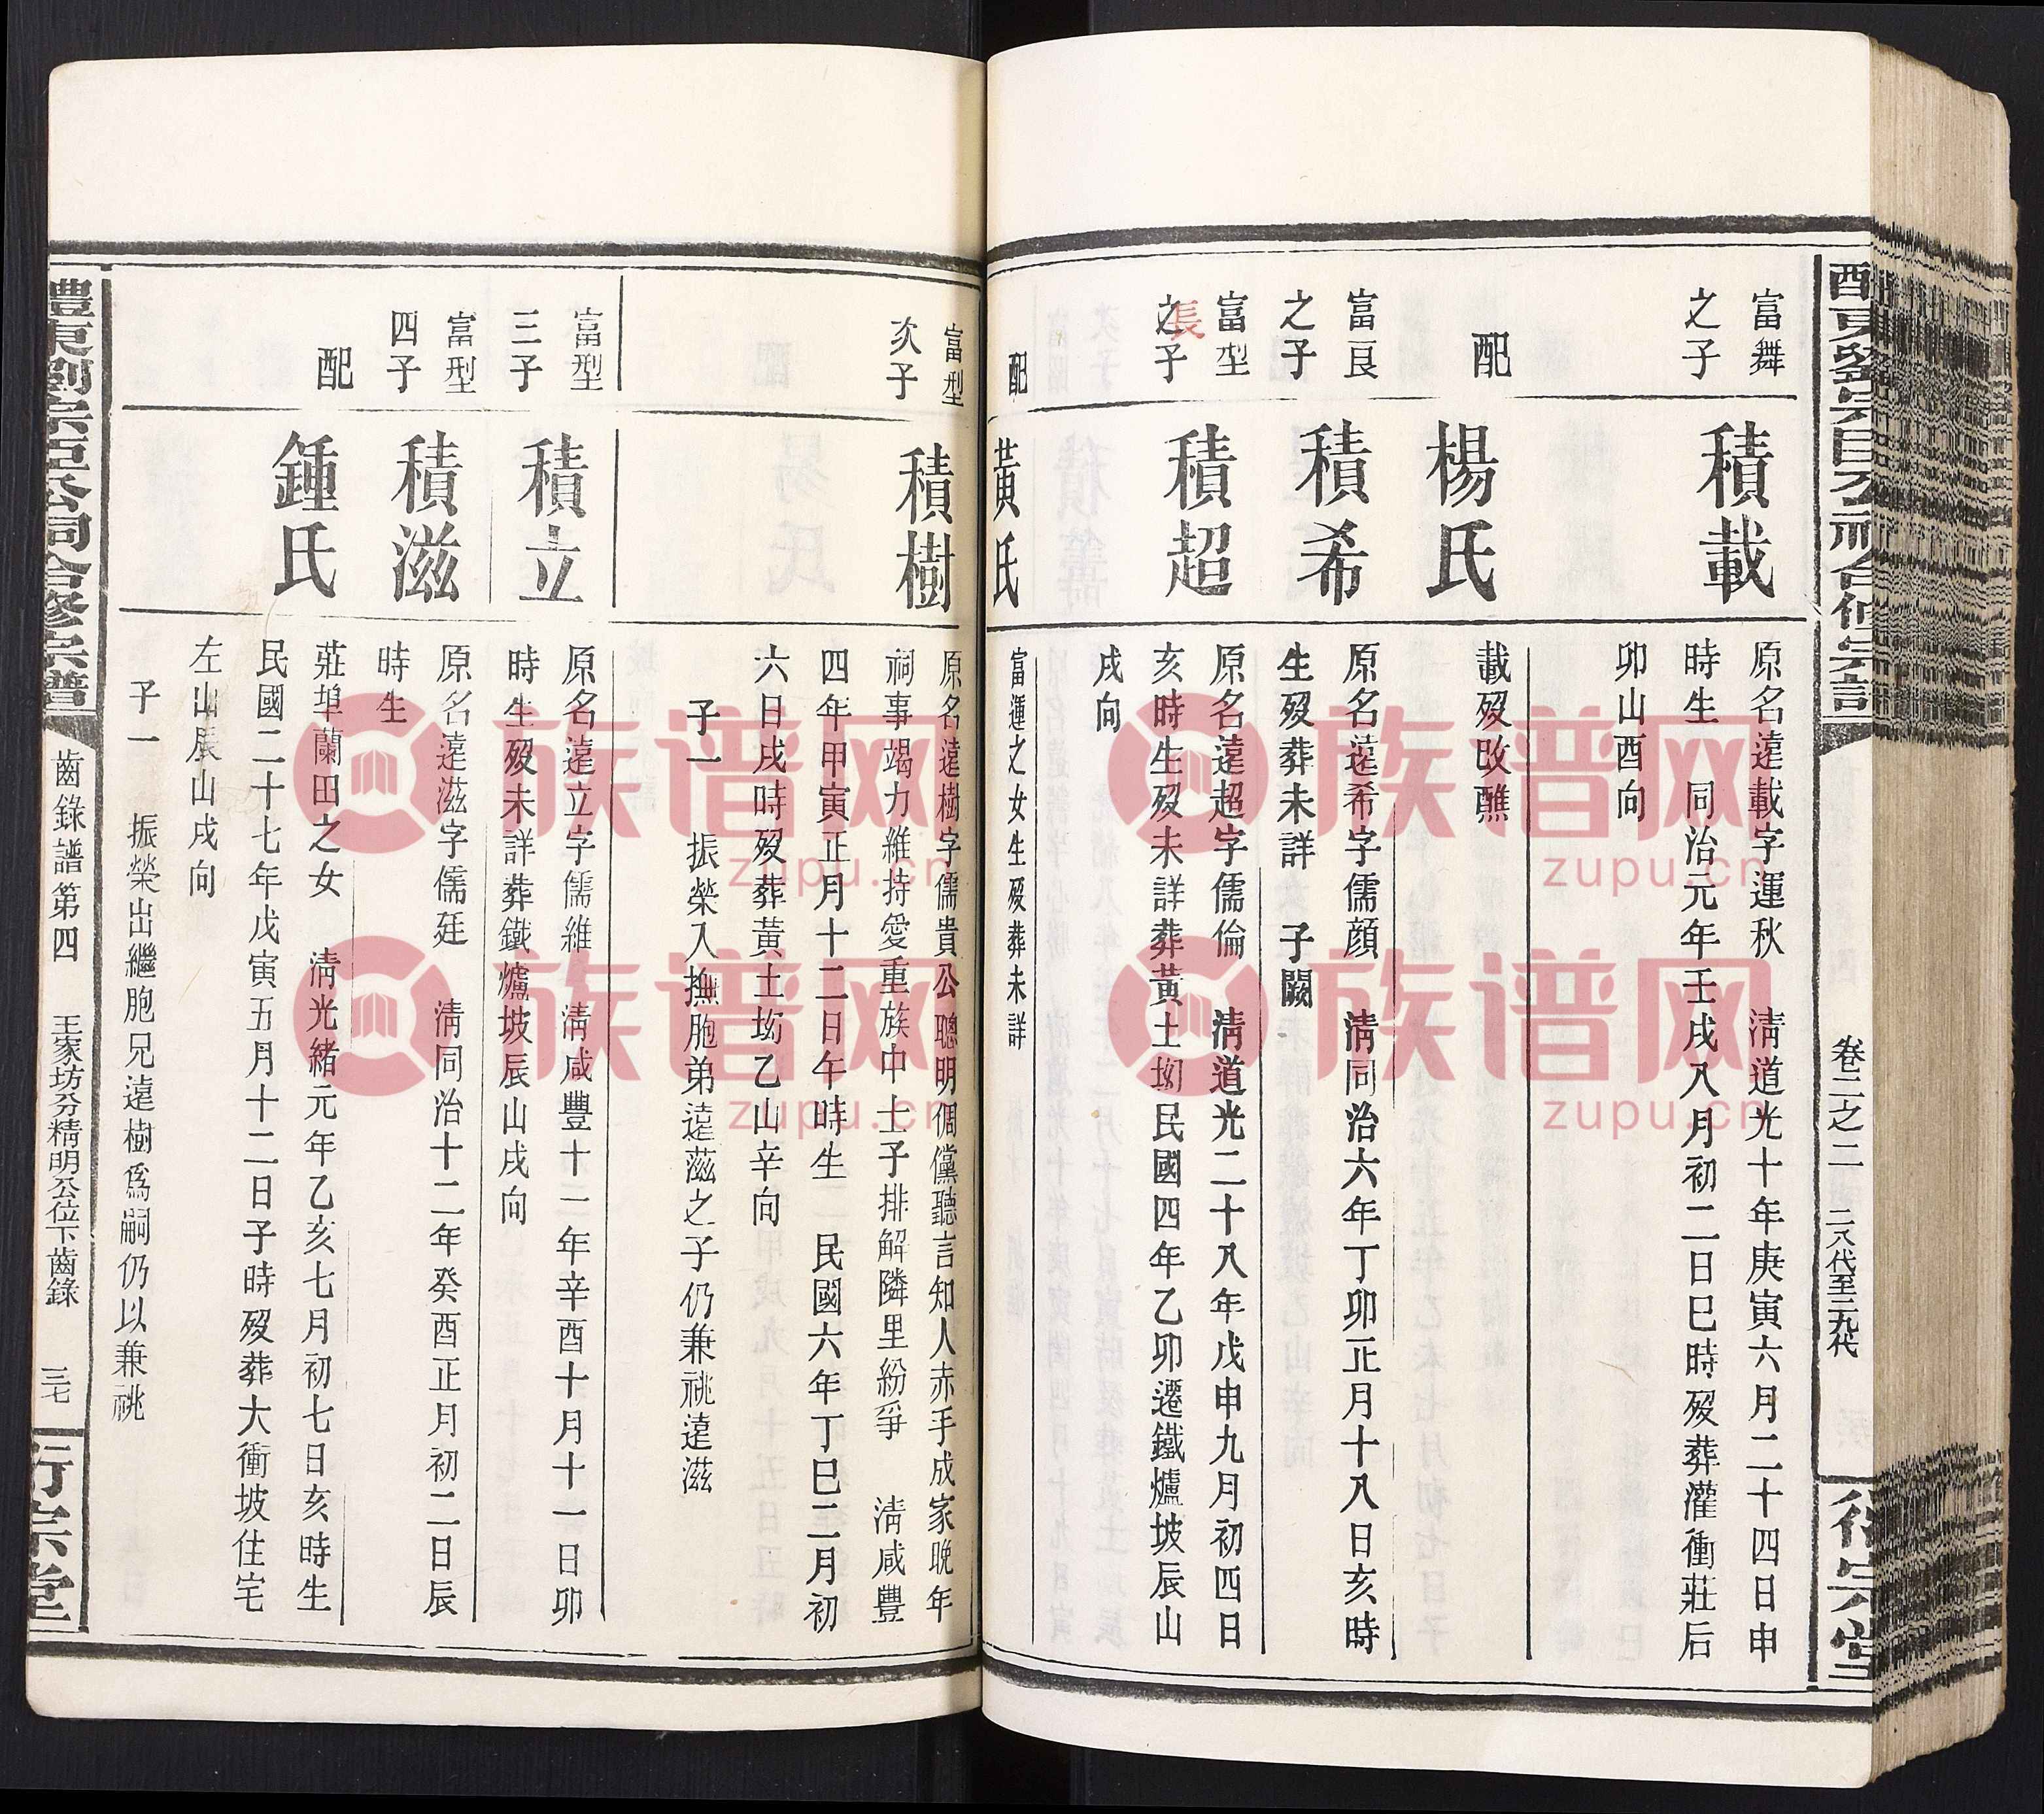 卷二之二
二八代至三九代
富舞
之子
積載
原名遠載字運秋　清道光十年庚寅六月二十四日申
時生　同治元年壬戌八月初二日巳時歿葬灌衝莊后
卯山酉向
配
楊氏
載歿改醮
富良
之子
積希
原名遠希字儒顏　清同治六年丁卯正月十八日亥時
生歿葬未詳　子闕
富型
之子
長
積超
原名遠超字儒倫　清道光二十八年戊申九月初四日
亥時生歿未詳葬黃土坳民國四年乙卯遷鐵爐坡辰山
戌向
配
黃氏
富運之女生歿葬未詳
富型
次子
積樹
原名遠樹字儒貴公聰明倜儻聽言知人赤手成家晚年
祠事竭力維持愛重族中士子排解隣里紛爭　清咸豐
四年甲寅正月十二日午時生　民國六年丁巳二月初
六日戌時歿葬黃土坳乙山辛向
子一　振榮入撫胞弟遠滋之子仍兼祧遠滋
富型
三子
積立
原名遠立字儒維　清咸豐十一年辛酉十月十一日卯
時生歿未詳葬鐵爐坡辰山戌向
富型
四子
積滋
原名遠滋字儒廷　清同治十二年癸酉正月初二日辰
時生
配
鍾氏
莊埠蘭田之女　清光緒元年乙亥七月初七日亥時生
民國二十七年戊寅五月十二日子時歿葬大衝坡住宅
左山辰山戌向
子一　振榮出繼胞兄遠樹為嗣仍以兼祧
醴東劉宗臣公祠合修宗譜
齒錄譜第四
王家坊分精明公位下齒錄
三七
衍宗堂
族谱网
zupu.cn
族谱网
zupu.cn
族谱网
zupu.cn
族谱网
zupu.cn